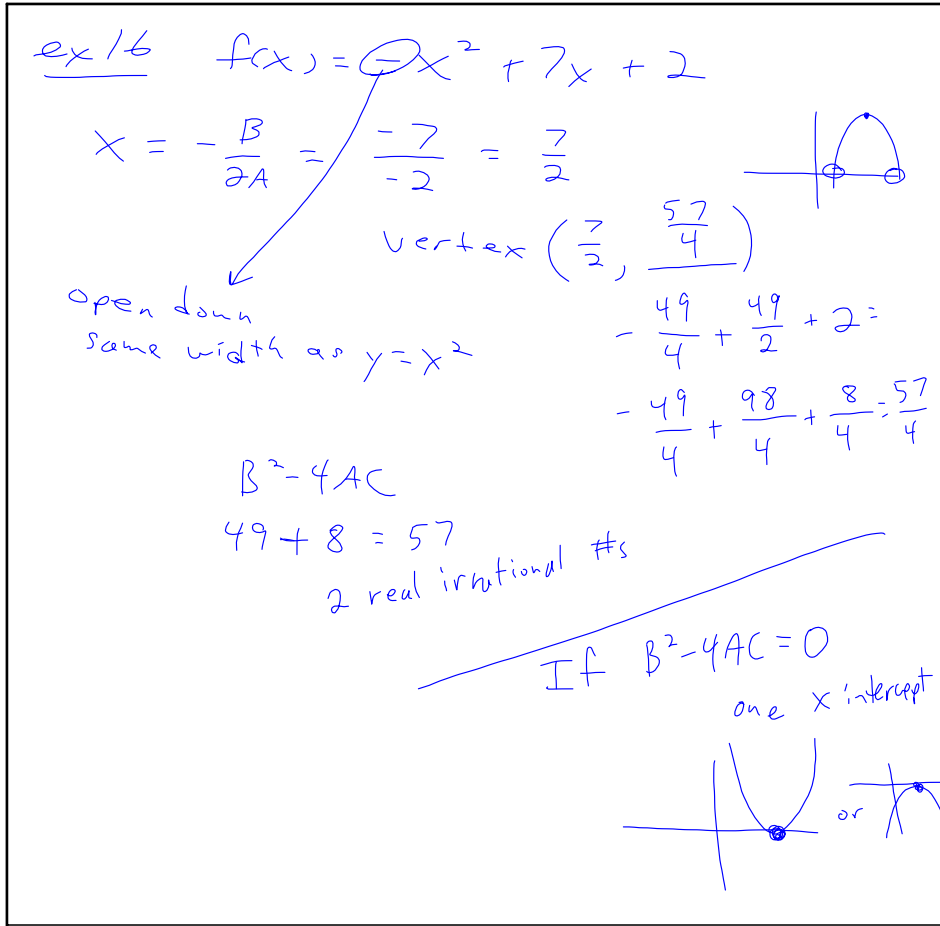 ex 16 f(x) = -x² + 7x + 2
x = -B/2A = -7/-2 = 7/2
vertex (7/2, 57/4)
open down
same width as y = x²
-49/4 + 49/2 + 2 =
-49/4 + 98/4 + 8/4 = 57/4
B² - 4AC
49 + 8 = 57
2 real irrational #s
If B² - 4AC = 0
one x intercept
or